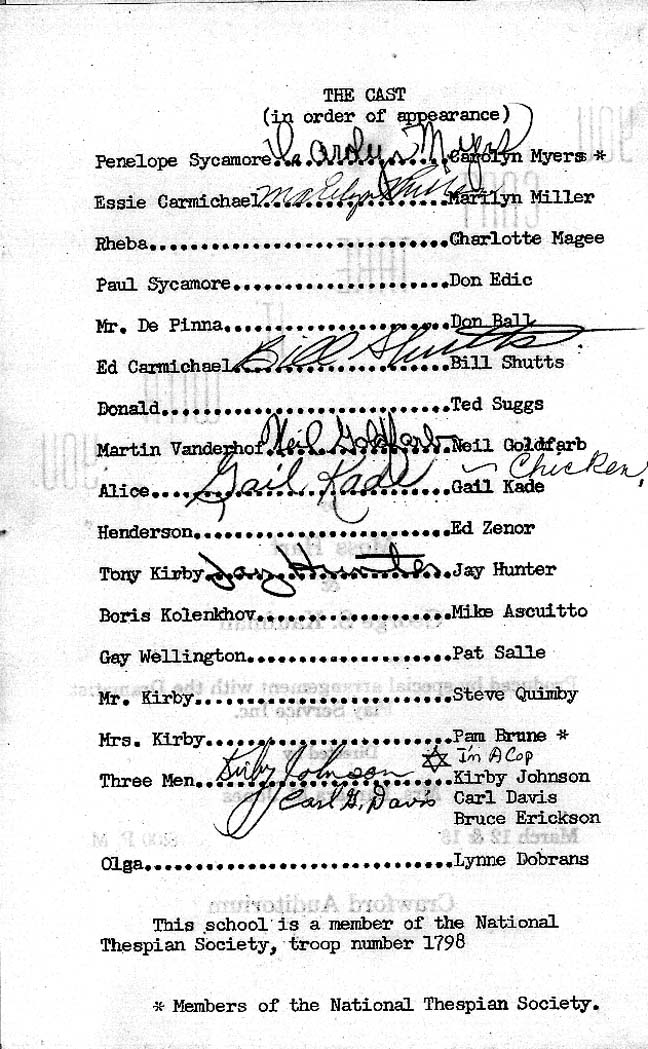 THE CAST
(in order of appearance)
Penelope Sycamore.. Carolyn Myers ..Carolyn Myers *
Essie Carmichael Marilyn Shutts Marilyn Miller
Rheba..............................Charlotte Magee
Paul Sycamore......................Don Edic
Mr. De Pinna.......................Don Ball
Ed Carmichael Bill Shutts Bill Shutts
Donald.............................Ted Suggs
Martin Vanderhof Neil Goldfarb Neil Goldfarb
Alice... Gail Kade ...Gail Kade ~ Chicken,
Henderson..........................Ed Zenor
Tony Kirby Jay Hunter Jay Hunter
Boris Kolenkhov....................Mike Ascuitto
Gay Wellington.....................Pat Salle
Mr. Kirby..........................Steve Quimby
Mrs. Kirby.........................Pam Brune *
✡ I'm A Cop
Three Men.. Kirby Johnson Kirby Johnson
Carl G. Davis Carl Davis
Bruce Erickson
Olga...............................Lynne Dobrans
This school is a member of the National
Thespian Society, troop number 1798
* Members of the National Thespian Society.